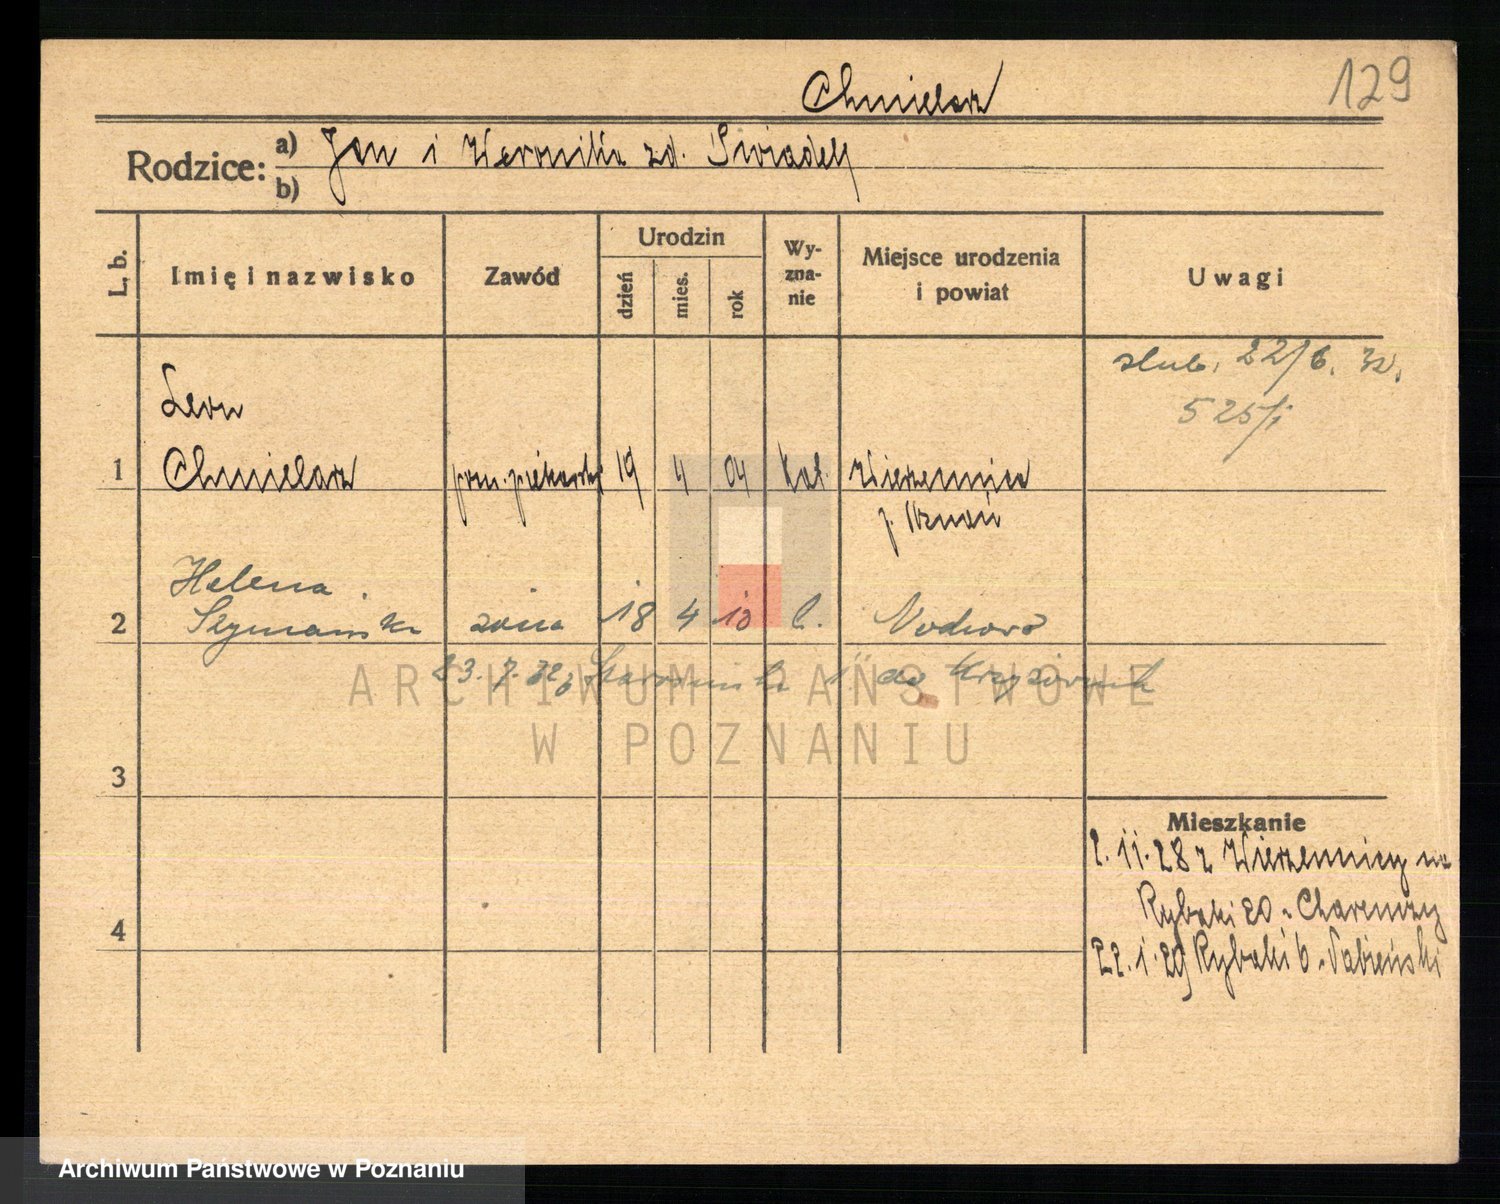 Chmielarz
129
Rodzice: a) Jan i Weronika zd. Swiadek
b)
L. b. Imię i nazwisko Zawód Urodzin dzień mies. rok Wyznanie Miejsce urodzenia i powiat Uwagi
ślub. 22/6. 32.
525/i
Leon
1 Chmielarz pom. piekarski 19 4 04 kat. Wierzenica
p. Poznań
Helena
2 Szymańska żona 18 4 10 k.
23. 7. 32 z
ARCHIWUM PAŃSTWOWE
W POZNANIU
3
Mieszkanie
2. 11. 28 z Wierzenicy na
Rybaki 20
4
22. 1. 29 Rybaki 6
Archiwum Państwowe w Poznaniu